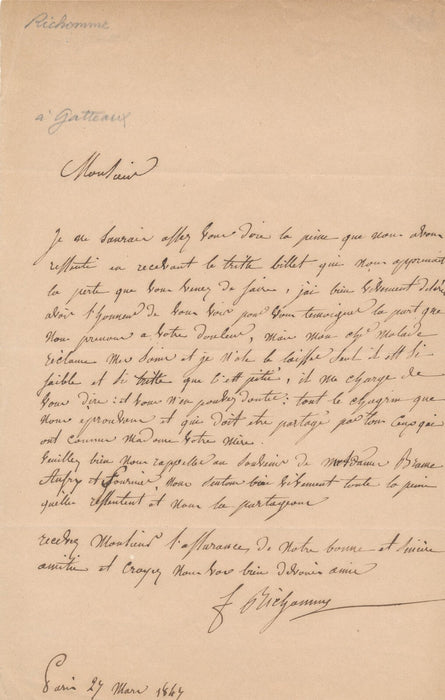 Richomme
à Gatteaux
Monsieur
Je ne saurair assez vous dire la peine que nous avons
ressenti en recevant le triste billet qui nous apprenait
la perte que vous venez de faire, j'ai bien vivement désiré
avoir l'honneur de vous voir pour vous temoigner la part que
nous prenons a votre douleur, mon cher malade
réclame mes soins et je n'ose le laisser seul il est si
faible et si triste que c'est pitié, il me charge de
vous dire: et vous n'en pouvez douter: tout le chagrin que
nous éprouvons et qui doit etre partagé par tous ceux qui
ont connu Madame votre mère.
Veuillez bien nous rappeller au souvenir de mesdames Brame
et Fournier, nous sentons bien vivement toute la peine
quelles ressentent et nous la partageons
recevez Monsieur l'assurance de notre bonne et sincère
amitié et croyez nous vos bien dévoués amis
f Richomme
Paris 27 Mars 1847